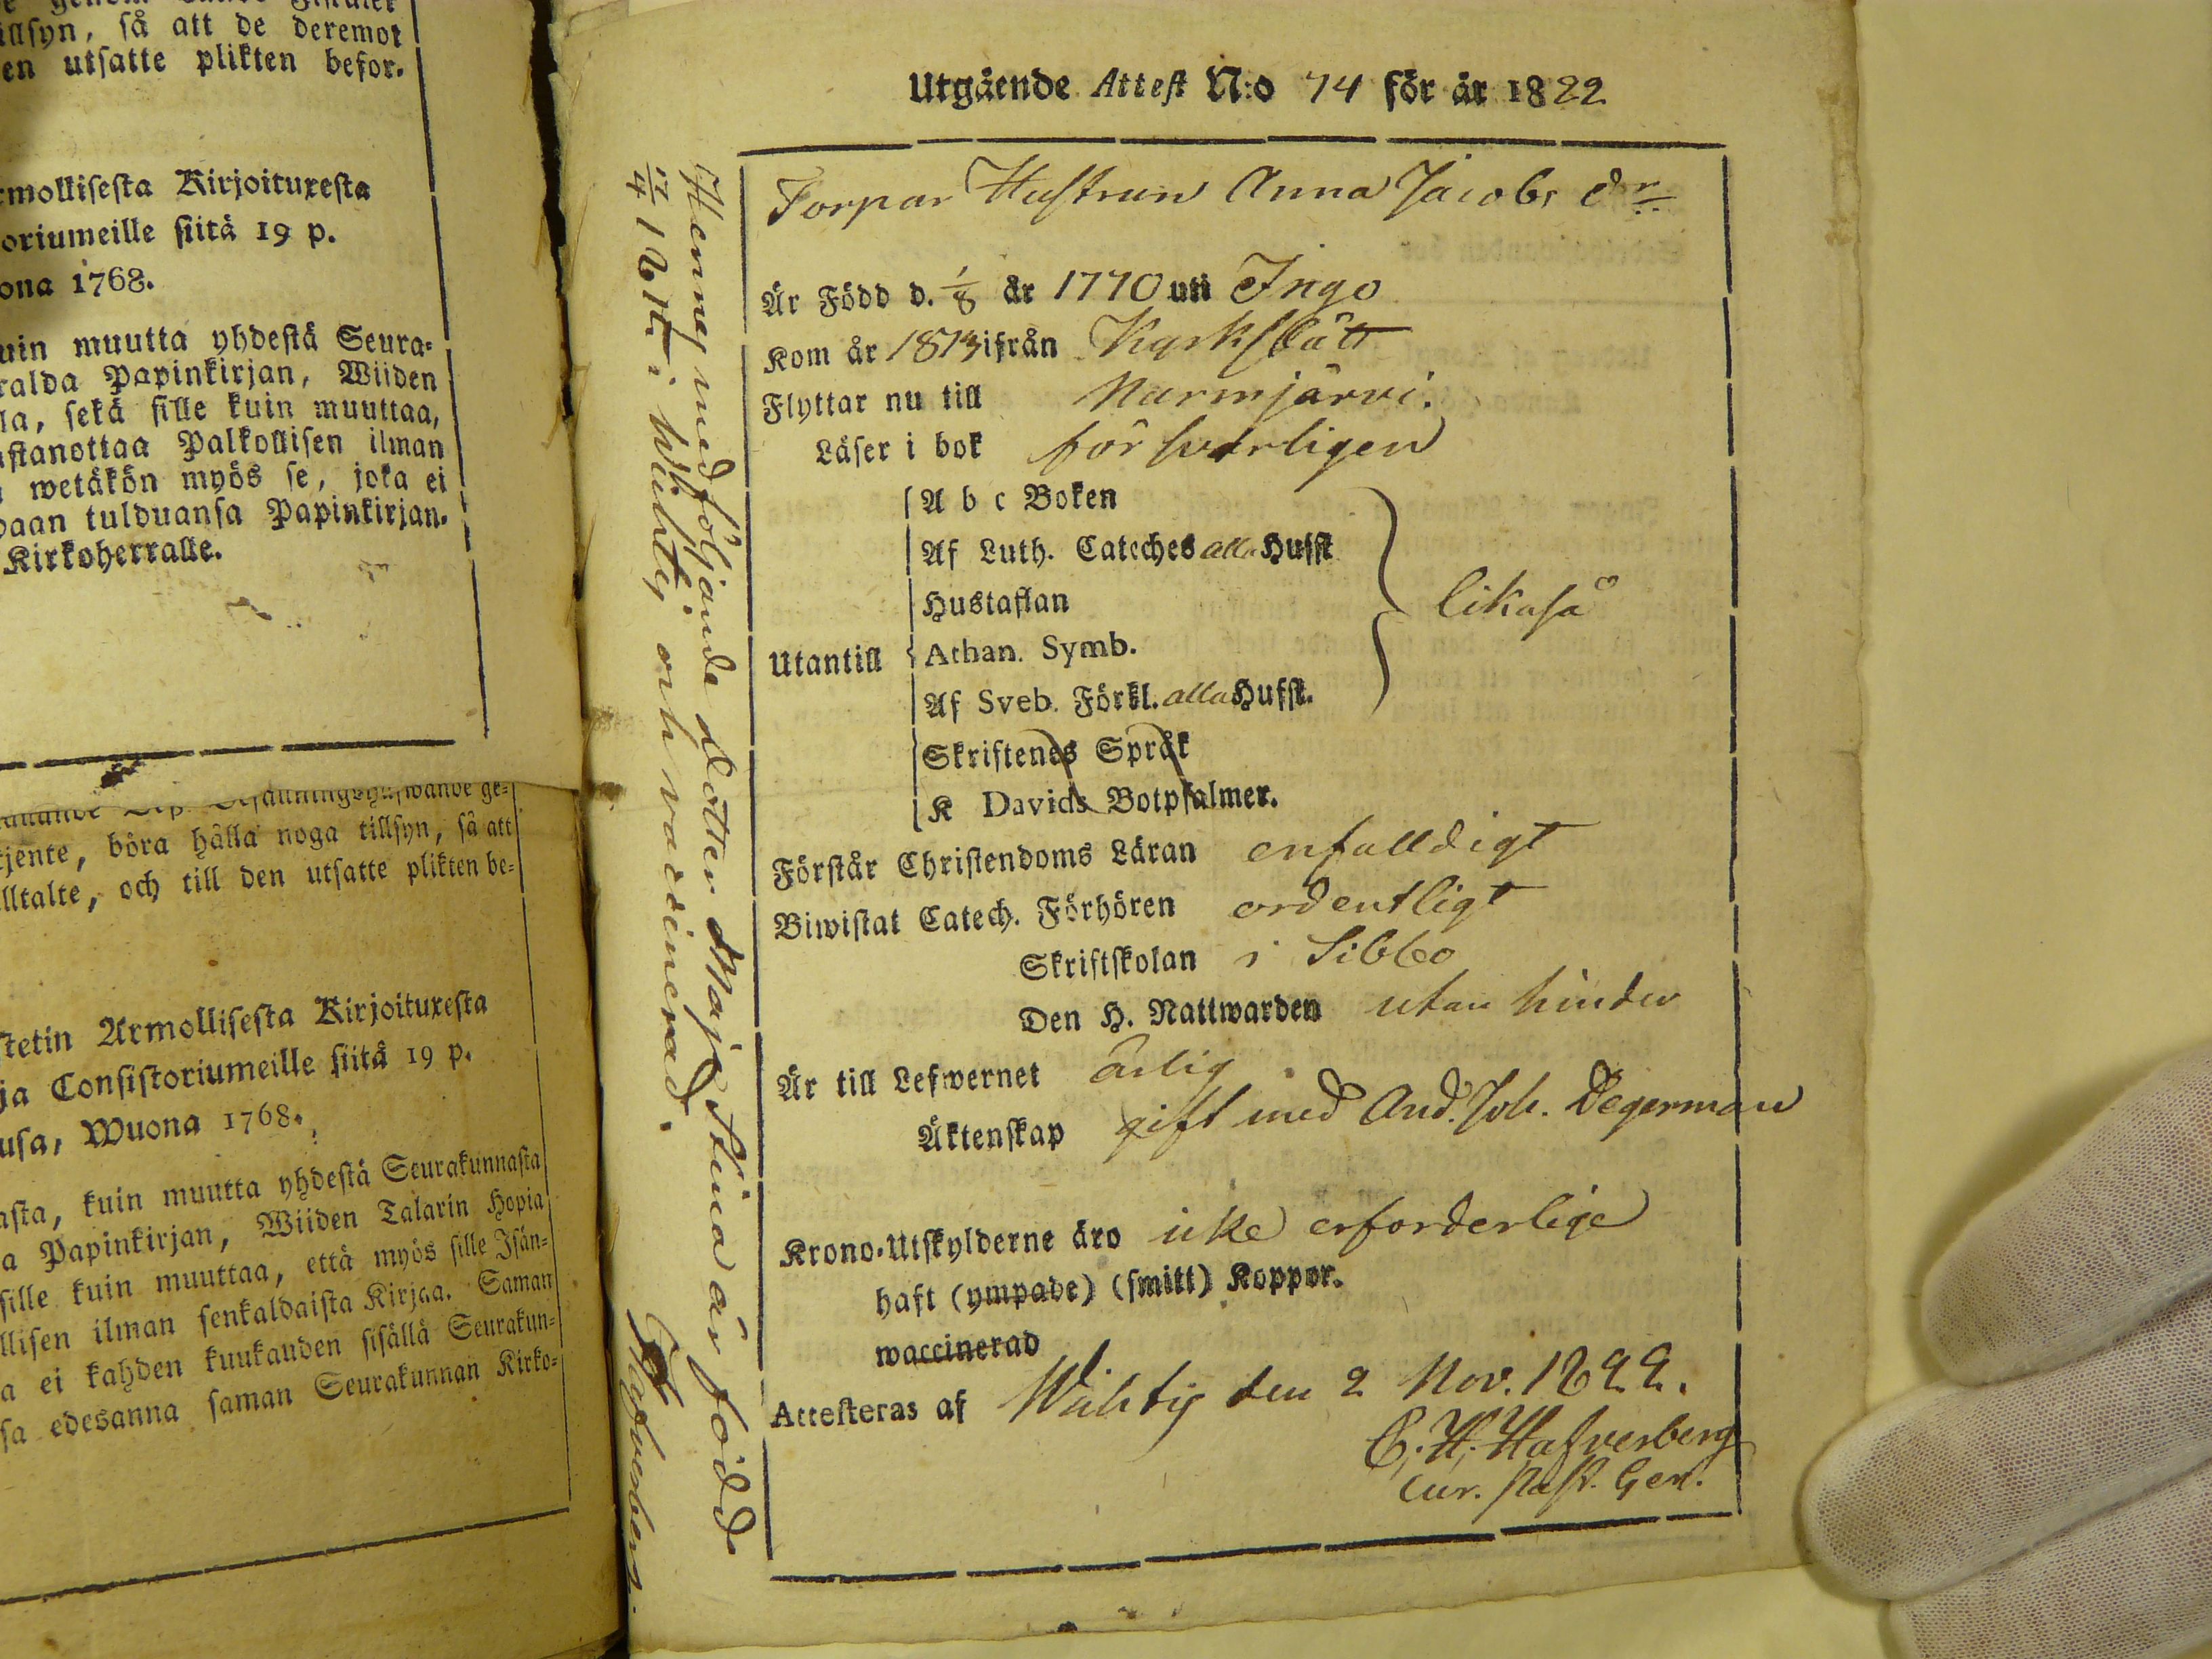 illsyn, så att de deremot
en utsatte plikten befor-
rmollisesta Kirjoituxesta
oriumeille siitä 19 p.
ona 1768.
uin muutta yhdestä Seura-
ralda Papinkirjan, Wiiden
la, sekä sille kuin muuttaa,
astanottaa Palkollisen ilman
wetäkön myös se, joka ei
paan tulduansa Papinkirjan-
Kirkoherralle.
tjente, böra hålla noga tillsyn, så att
lltalte, och till den utsatte plikten be-
stetin Armollisesta Kirjoituxesta
ja Consistoriumeille siitä 19 p.
usa, Wuona 1768.
asta, kuin muutta yhdestä Seurakunnasta
a Papinkirjan, Wiiden Talarin Hopia
sille kuin muuttaa, että myös sille Isän-
llisen ilman senkaldaista Kirjaa. Saman
a ei kahden kuukauden sisällä Seurakun-
sa edesanna saman Seurakunnan Kirko-
Utgående Attest N:o 74 för år 1822
Torpar Hustrun Anna Jacobs dr
Är Född d. 1/8 år 1770 uti Ingo
Kom år 1813 ifrån Kyrkslätt
Flyttar nu till Nurmijärvi.
Läser i bok försvarligen
A b c Boken
Af Luth. Cateches alla Hufst
Hustaflan likaså
Utantill Athan. Symb.
Af Sveb. Förkl. alla Hufst.
Skriftenes Språk
K Davids Botpsalmer.
Förstår Christendoms Läran enfalldigt
Biwistat Catech. Förhören ordentligt
Skriftskolan i Sibbo
Den H. Nattwarden utan hinder
Är till Lefwernet ärlig
Äktenskap gift med And. Joh. Degerman
Krono-Utskylderne äro icke erforderlige
haft (ympade) (smitt) Koppor.
waccinerad
Attesteras af Wichtis den 2 Nov. 1822.
C. H. Hafverberg
Cur. Past. Ger.
Hennes medföljande dotter Maja Stina är född
17/4 1817 i Wichtis och vaccinerad.
Hafverberg.